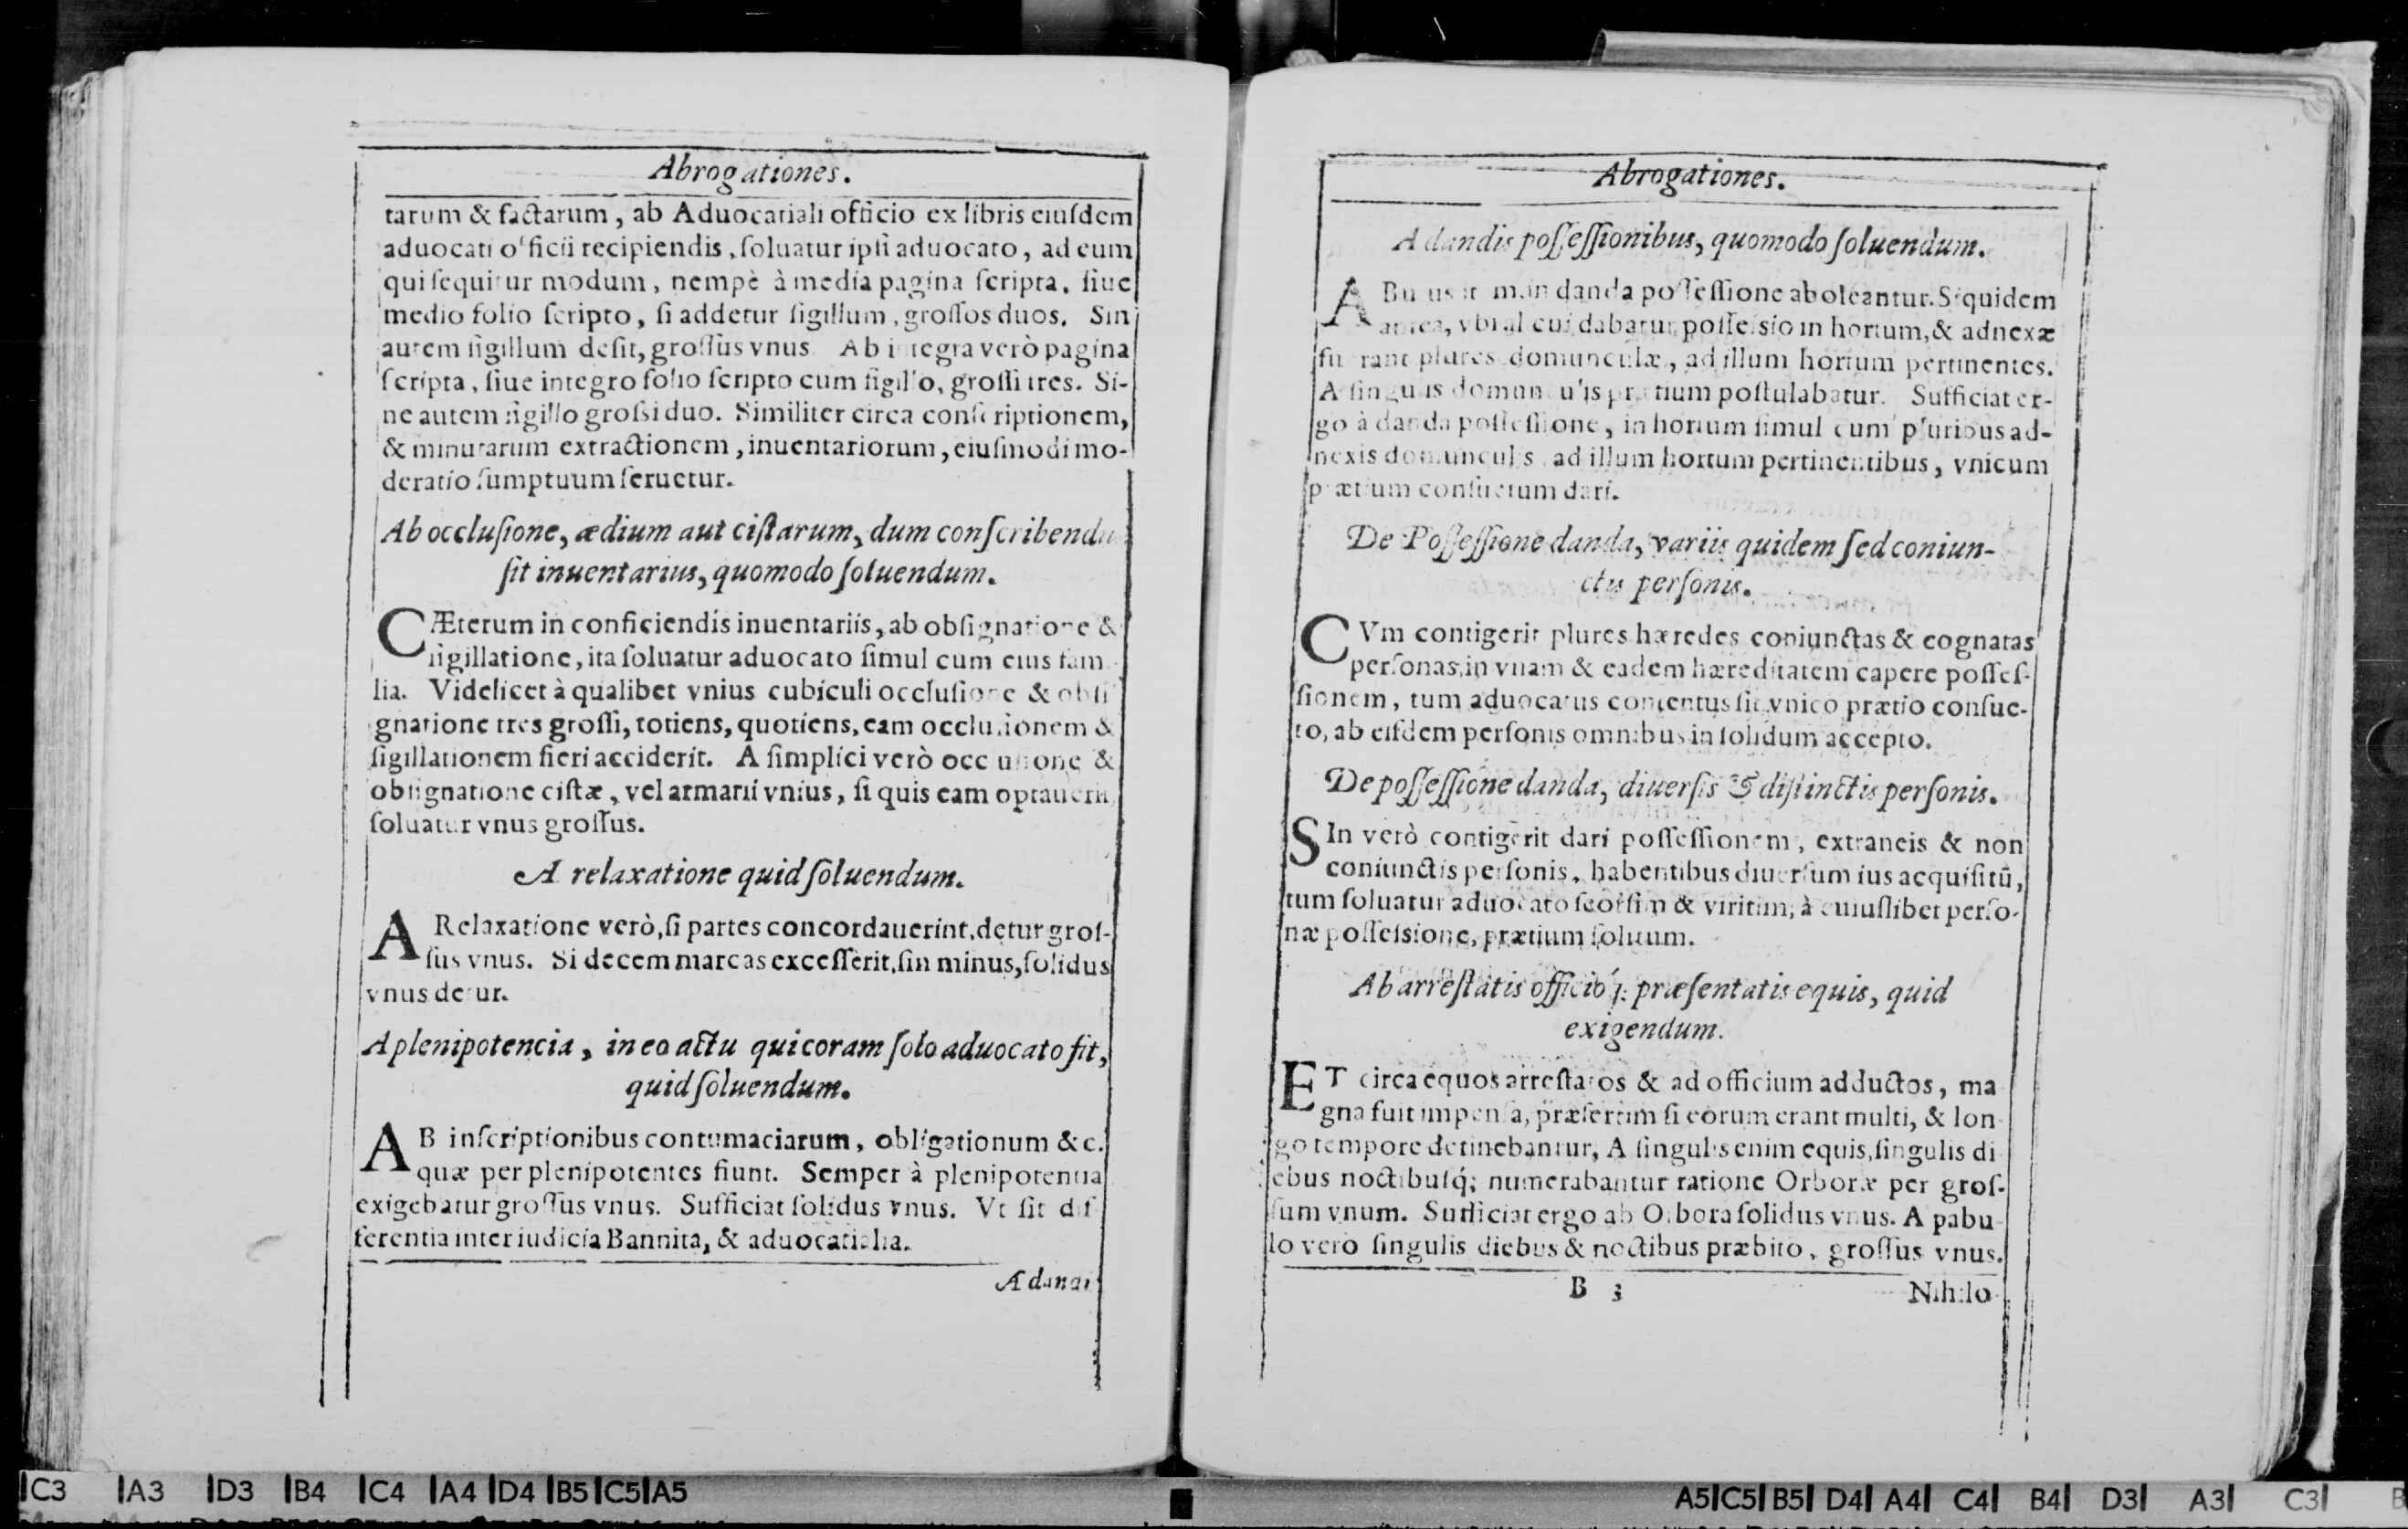 Abrogationes.
tarum & factarum, ab Aduocatiali officio ex libris eiuſdem
aduocati officii recipiendis, ſoluatur ipſi aduocato, ad eum
qui ſequitur modum, nempè à media pagina ſcripta, ſiue
medio folio ſcripto, ſi addetur ſigillum, groſſos duos. Sin
autem ſigillum deſit, groſſus vnus. Ab integra verò pagina
ſcripta, ſiue integro folio ſcripto cum ſigillo, groſſi tres. Si-
ne autem ſigillo groſsi duo. Similiter circa conſcriptionem,
& minutarum extractionem, inuentariorum, eiuſmodi mo-
deratio ſumptuum ſeruetur.
Ab occluſione, ædium aut ciſtarum, dum conſcribendu
ſit inuentarius, quomodo ſoluendum.
CÆterum in conficiendis inuentariis, ab obſignatione &
ſigillatione, ita ſoluatur aduocato ſimul cum eius fami-
lia. Videlicet à qualibet vnius cubiculi occluſione & obſi
gnatione tres groſſi, totiens, quotiens, eam occluſionem &
ſigillationem fieri acciderit. A ſimplici verò occluſione &
obſignatione ciſtæ, vel armarii vnius, ſi quis eam optauerit
ſoluatur vnus groſſus.
A relaxatione quid ſoluendum.
A Relaxatione verò, ſi partes concordauerint, detur groſ-
ſus vnus. Si decem marcas exceſſerit, ſin minus, ſolidus
vnus detur.
A plenipotencia, in eo actu qui coram ſolo aduocato fit,
quid ſoluendum.
AB inſcriptionibus contumaciarum, obligationum &c.
quæ per plenipotentes fiunt. Semper à plenipotentia
exigebatur groſſus vnus. Sufficiat ſolidus vnus. Vt ſit dif
ferentia inter iudicia Bannita, & aduocatialia.
A dandi
Abrogationes.
A dandis poſſeſſionibus, quomodo ſoluendum.
ABuſus in danda poſſeſſione aboleantur. Siquidem
antea, vbi alicui dabatur poſſeſsio in hortum, & adnexæ
fuerant plures domunculæ, ad illum hortum pertinentes.
A ſingulis domunculis prætium poſtulabatur. Sufficiat er-
go à danda poſſeſſione, in hortum ſimul cum pluribus ad-
nexis domunculis, ad illum hortum pertinentibus, vnicum
prætium conſuetum dari.
De Poſſeſſione danda, variis quidem ſed coniun-
ctis perſonis.
CVm contigerit plures hæredes coniunctas & cognatas
perſonas, in vnam & eadem hæreditatem capere poſſeſ-
ſionem, tum aduocatus contentus ſit vnico prætio conſue-
to, ab eiſdem perſonis omnibus in ſolidum accepto.
De poſſeſſione danda, diuerſis & diſtinctis perſonis.
SIn verò contigerit dari poſſeſſionem, extraneis & non
coniunctis perſonis, habentibus diuerſum ius acquiſitũ,
tum ſoluatur aduocato ſeorſim & viritim, à cuiuſlibet perſo-
næ poſſeſsione, prætium ſolitum.
Ab arreſtatis officioq́; præſentatis equis, quid
exigendum.
ET circa equos arreſtatos & ad officium adductos, ma
gna fuit impenſa, præſertim ſi eorum erant multi, & lon-
go tempore detinebantur, A ſingulis enim equis, ſingulis di
ebus noctibuſq́; numerabantur ratione Orboræ per groſ-
ſum vnum. Sufficiat ergo ab Orbora ſolidus vnus. A pabu-
lo verò ſingulis diebus & noctibus præbito, groſſus vnus.
B 3 Nihilo
C3 A3 D3 B4 C4 A4 D4 B5 C5 A5
A5 C5 B5 D4 A4 C4 B4 D3 A3 C3